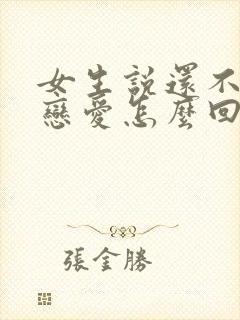 女生說還不
戀愛怎麼回
張金勝